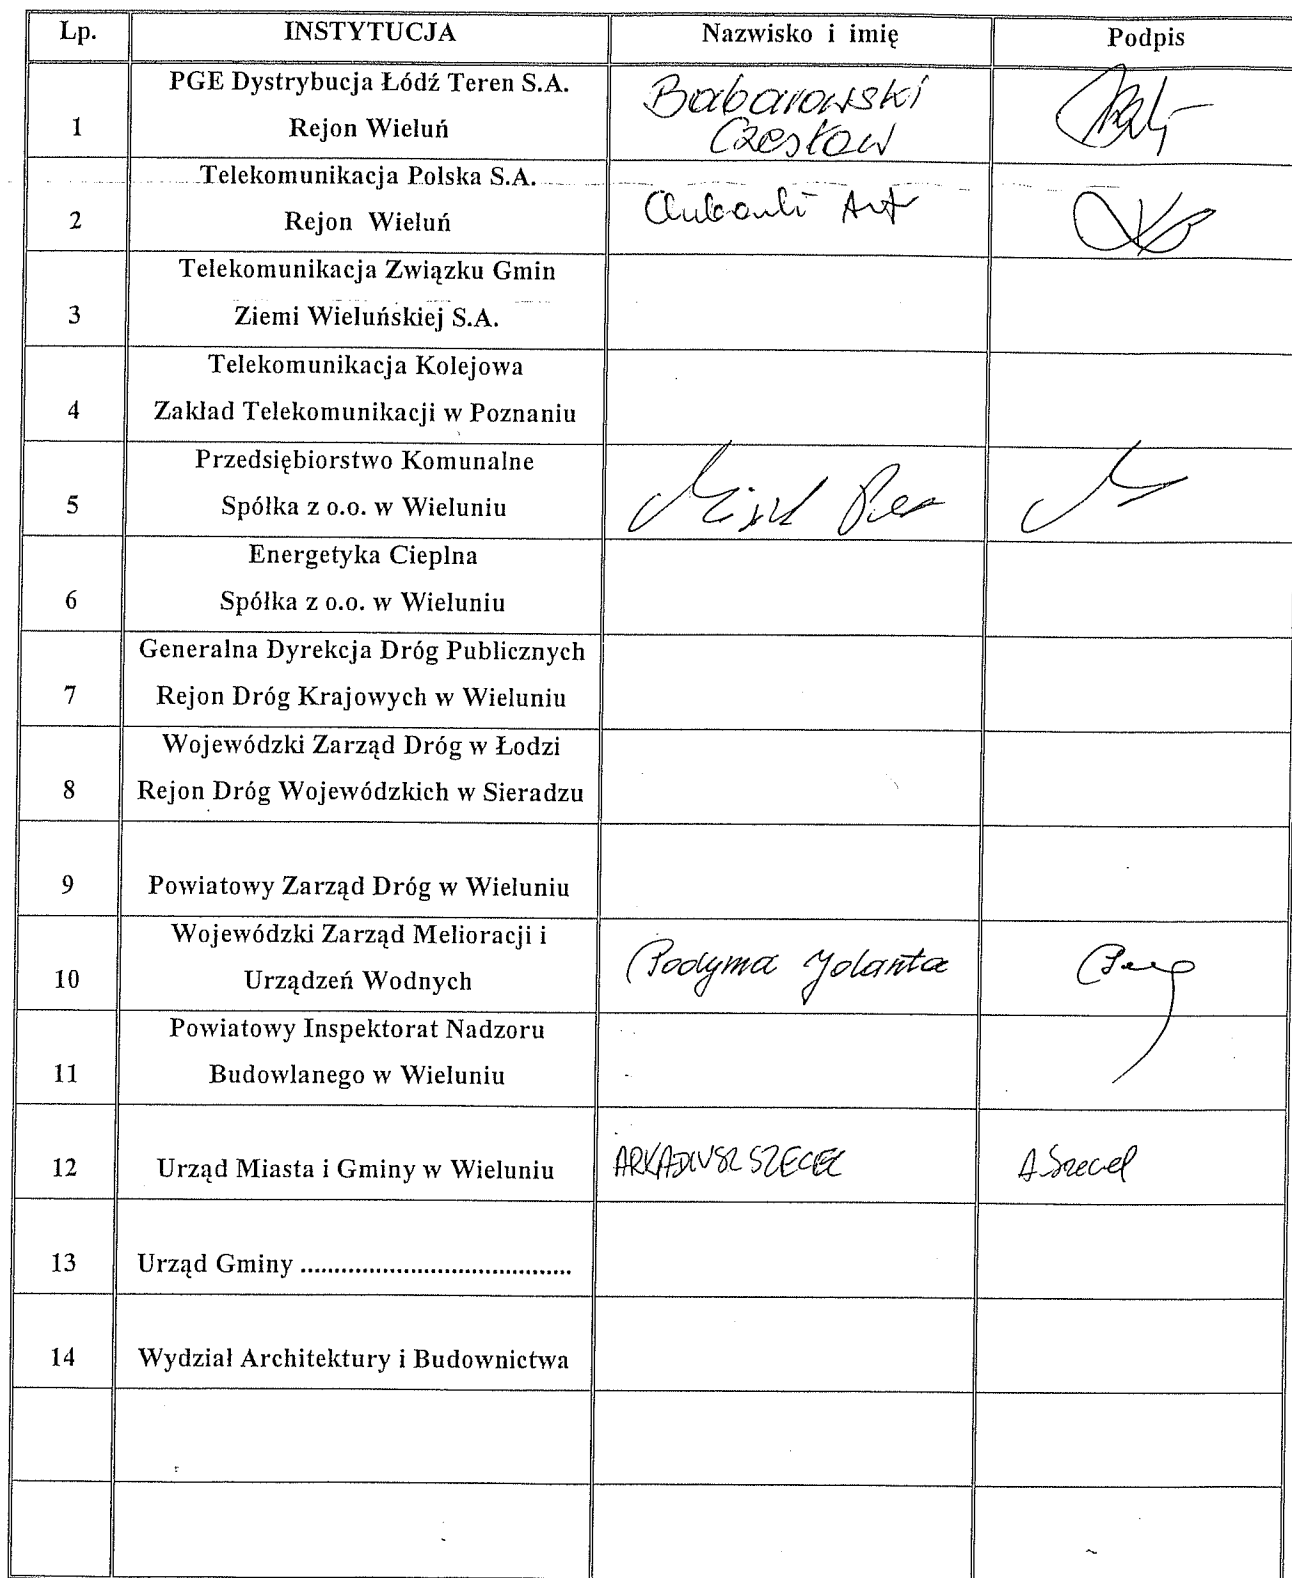 Lp. INSTYTUCJA Nazwisko i imię Podpis
PGE Dystrybucja Łódź Teren S.A.
1 Rejon Wieluń
Babarowski
Czesław
Telekomunikacja Polska S.A.
2 Rejon Wieluń
Telekomunikacja Związku Gmin
3 Ziemi Wieluńskiej S.A.
Telekomunikacja Kolejowa
4 Zakład Telekomunikacji w Poznaniu
Przedsiębiorstwo Komunalne
5 Spółka z o.o. w Wieluniu
Energetyka Cieplna
6 Spółka z o.o. w Wieluniu
Generalna Dyrekcja Dróg Publicznych
7 Rejon Dróg Krajowych w Wieluniu
Wojewódzki Zarząd Dróg w Łodzi
8 Rejon Dróg Wojewódzkich w Sieradzu
9 Powiatowy Zarząd Dróg w Wieluniu
Wojewódzki Zarząd Melioracji i
10 Urządzeń Wodnych
Podyma Jolanta
Powiatowy Inspektorat Nadzoru
11 Budowlanego w Wieluniu
12 Urząd Miasta i Gminy w Wieluniu ARKADIUSZ SZECEL A. Szecel
13 Urząd Gminy ........................................
14 Wydział Architektury i Budownictwa